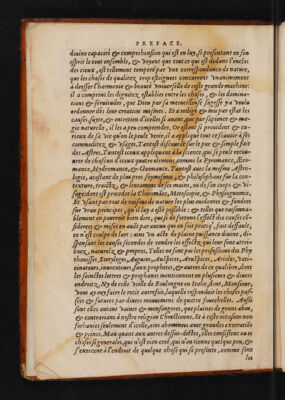 PREFACE.
diuine capacité & comprehension qui est en luy, se presentent en son
esprit le tout ensemble, & voyant que tout ce qui est dedans l'enclos
des cieux, est tellement temperé par vne correspondance de nature,
que les choses de qualitez trop esloignees concurrent vnanimement
à dresser l'harmonie & beauté vniuerselle de ceste grande machine:
il a comprins les dignitez establies entre les choses, & les domina-
tions & seruitudes, que Dieu par sa merueilleuse sagesse y a voulu
ordonner dés leur creation mesmes. Et
causes, suyte, & entretien d'icelles, ainsi que par sapience & ma-
gie naturelle, il les a peu comprendre. Or estant si president & cu-
rieux de sa vie qu'on le peult veoir, il a appliqué tout cest à ses
commoditez & vsages. Tantost discourãt sur le pur & simple fait
des Astres: Tantost
rer de chascun d'iceux quatre elemens, comme la Pyromance, Aëro-
mance, Hydromance, & Geomance. Tantost auec la mesme Astro-
logie, & philosophant sur la con-
texture, traictz, & lineamens de ses mains, ou de son corps & vi-
sage: dont est procedee la Chiromance, Metoscopie, & Physiognomie.
Et vsant par tout de raisons de nature les plus euidentes & fondees
sur vrais principes, qu'il luy a esté possible: & telles que raisonna-
blement on pourroit bien dire,
& mises en auant par aucun qui en soit
ce n'est coulpe de l'art: ains vn acte de pleine puissance diuine, dis-
pensant les causes secondes de rendre les effectz, qui leur sont attri-
buez, naturelz & propres. Telles ne sont pas les professions des Pyt-
thonisses, Ariolles, Augures, Auspices, Aruspices, diui-
nateurs, inuocateurs, faux prophetes, & autres de ce qualibre, dont
les sainctes lettres & prophanes mentionnent en plusieurs & diuers
endroitz. Ny de celle vieille de Boulongne en Italie, dont, Monsieur,
vous ay ouy faire le recit autresfois, laquelle respondoit les choses pas-
sees & futures par diuers mouuement de quatre fourchelles. Aussi
sont elles autant vaines & mensongeres, que pleines de grans abuz,
& contrarians à nostre religion Chrestienne. Et à ceste occasion non
forbanies seulement d'icelle, ains abominees aux grandes execratiõs
& peines. Mais quant aux autres dessus-dictes, elles consistent ou es
choses si generales, qui n'est rien creé, qui n'en tienne quelque peu, &
s'exercent à l'endroit de quelque chose qui se presente, comme sont
les